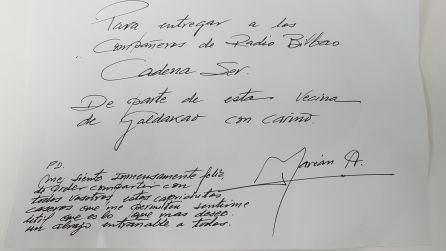 Para entregar a los
Compañeros de Radio Bilbao
Cadena Ser.
De parte de esta vecina
de Galdakao con cariño.
Marian A.
P.D.
me siento inmensamente feliz
de poder compartir con
todos vosotros estos caprichitos
caseros que me permiten sentirme
útil que es lo que mas deseo.
un abrazo entrañable a todos.